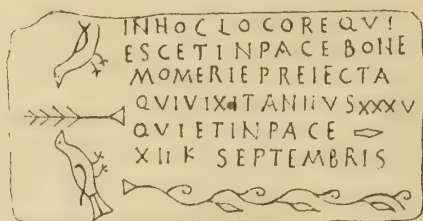 INHOCLOCOREQVI
ESCETINPACEBONE
MOMERIEPREIECTA
QVIVIXITANNVSXXXV
QVIETINPACE
XIIK SEPTEMBRIS